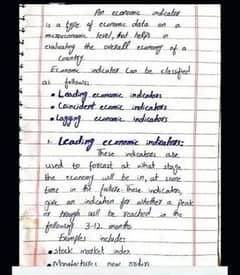 An economic indicator
is a type of economic data on a
microeconomic level, that helps in
evaluating the overall economy of a
Country.
Economic indicator can be classified
as follows:
• Leading economic indicators
• Coincident economic indicators
• Lagging economic indicators
1. Leading economic indicators:
These indicators are
used to forecast at what stage
the economy will be in, at some
time in the future. These indicators,
give an indication for whether a peak
or trough will be reached in the
following 3-12 months
Examples include:
• Stock market index
• Manufactures new orders